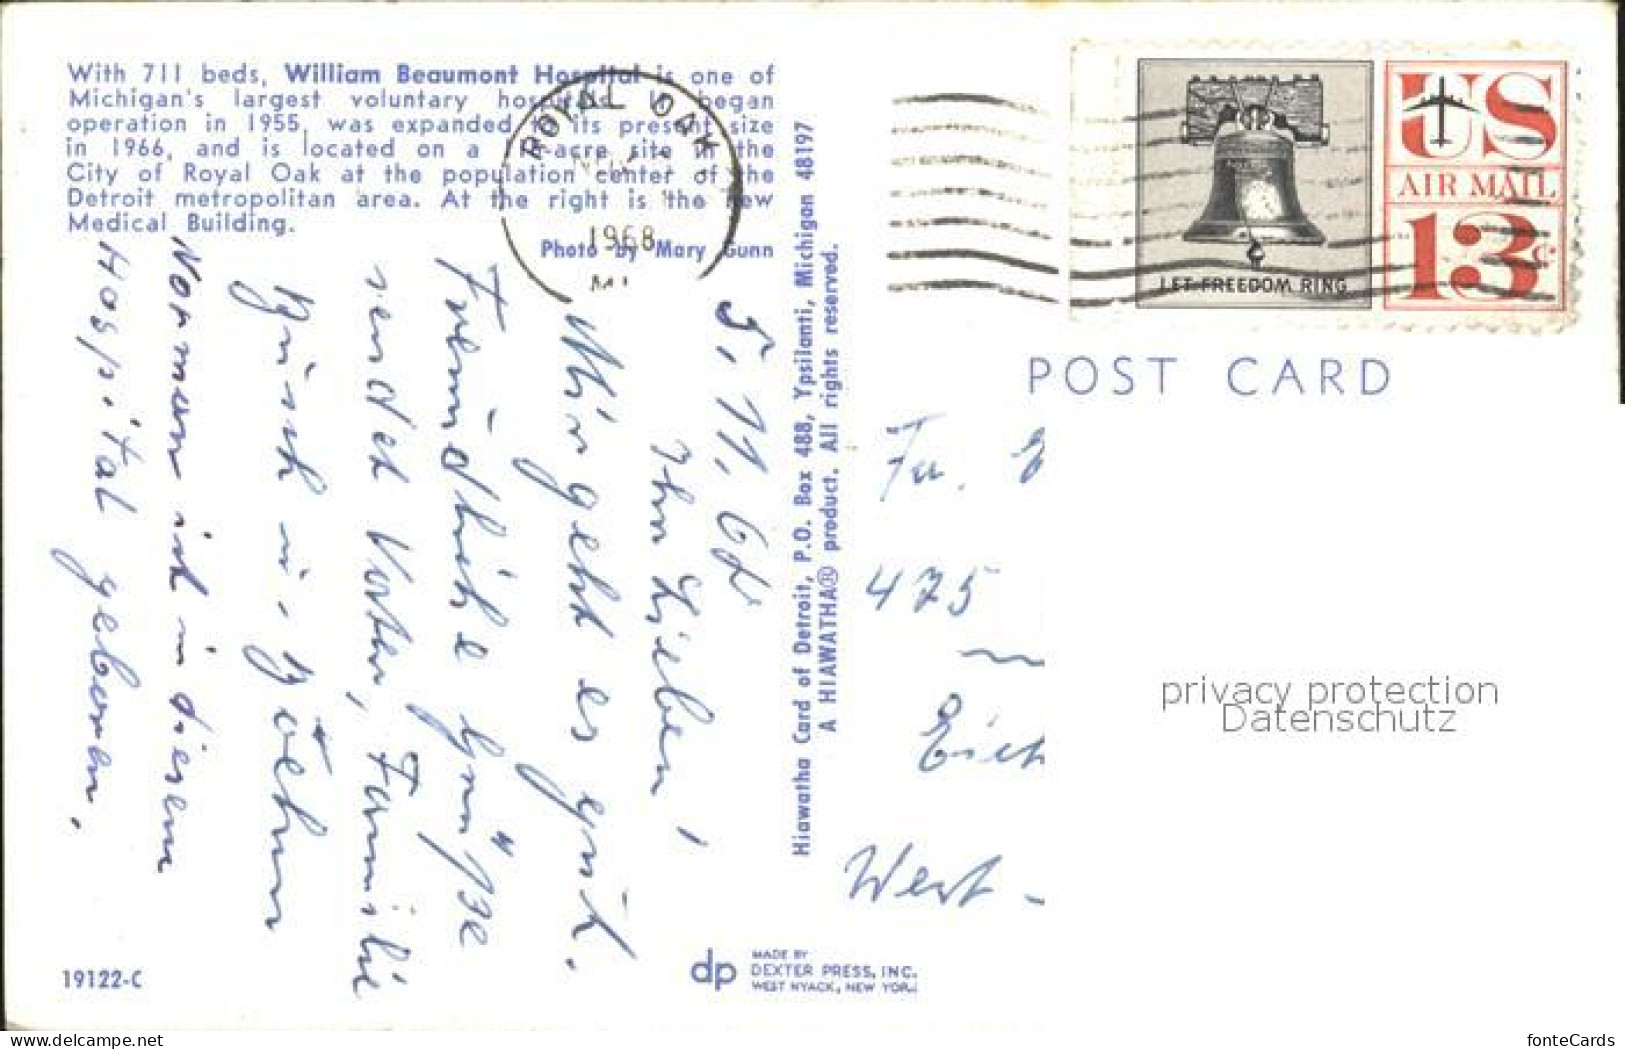 With 711 beds, William Beaumont Hospital is one of
Michigan's largest voluntary hospitals. It began
operation in 1955, was expanded to its present size
in 1966, and is located on a -acre site in the
City of Royal Oak at the population center of the
Detroit metropolitan area. At the right is the new
Medical Building.
Photo by Mary Gunn
ROYAL OAK
1968
MI
US
AIR MAIL
13c
LET FREEDOM RING
POST CARD
5. 11. 68
Ihr Lieben!
Mir geht es gut.
Freundliche Grüße
sendet Vater, Familie
Norman ist in diesem
Hospital geboren.
Hiawatha Card of Detroit, P.O. Box 488, Ypsilanti, Michigan 48197
A HIAWATHA® product. All rights reserved.
Fa.
475
Eich
West -
privacy protection
Datenschutz
19122-C
dp
MADE BY
DEXTER PRESS, INC.
WEST NYACK, NEW YORK
www.delcampe.net
fonteCards